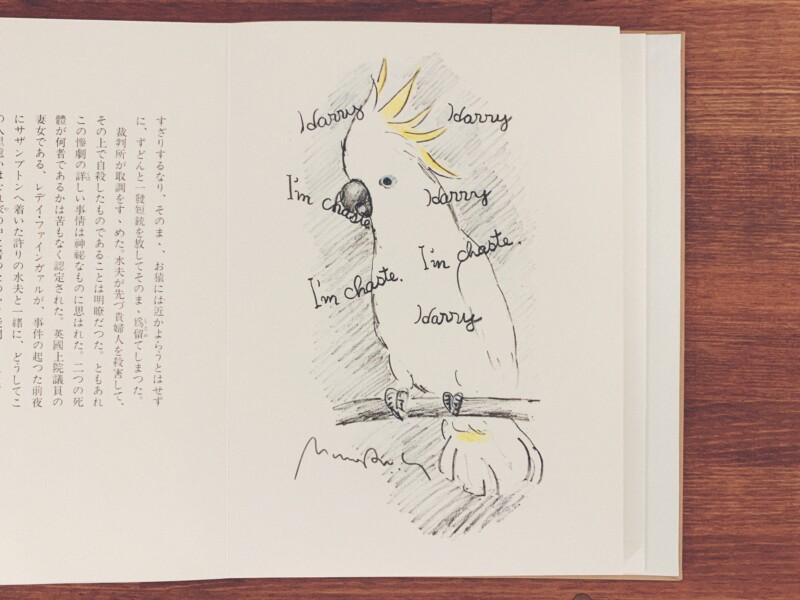 すざりするなり、そのまゝ、お猿には近かよらうとはせず
に、ずどんと一發短銃を放してそのまゝ爲留てしまつた。
裁判所が取調をすゝめた。水夫が先づ貴婦人を殺害して、
その上で自殺したものであることは明瞭だつた。ともあれ
この慘劇の詳しい事情は神祕なものに思はれた。二つの死
體が何者であるかは苦もなく認定された。英國上院議員の
妻女である、レデイ・ファインガァルが、事件の起つた前夜
にサザンプトンへ着いた許りの水夫と一緒に、どうしてこ
Harry
Harry
I'm chaste
Harry
I'm chaste.
I'm chaste.
Harry